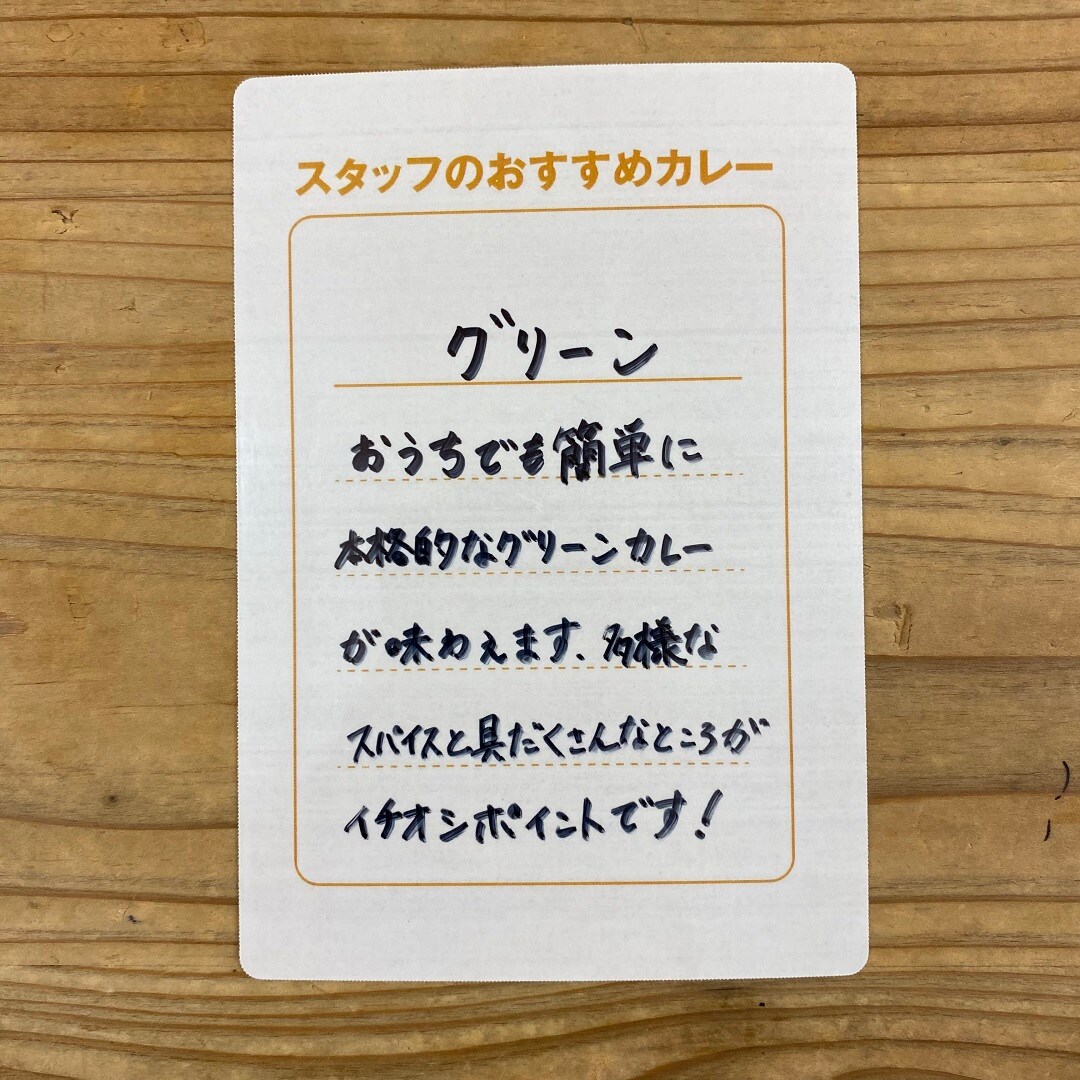 スタッフのおすすめカレー
グリーン
おうちでも簡単に
本格的なグリーンカレー
が味わえます、多様な
スパイスと具だくさんなところが
イチオシポイントです!